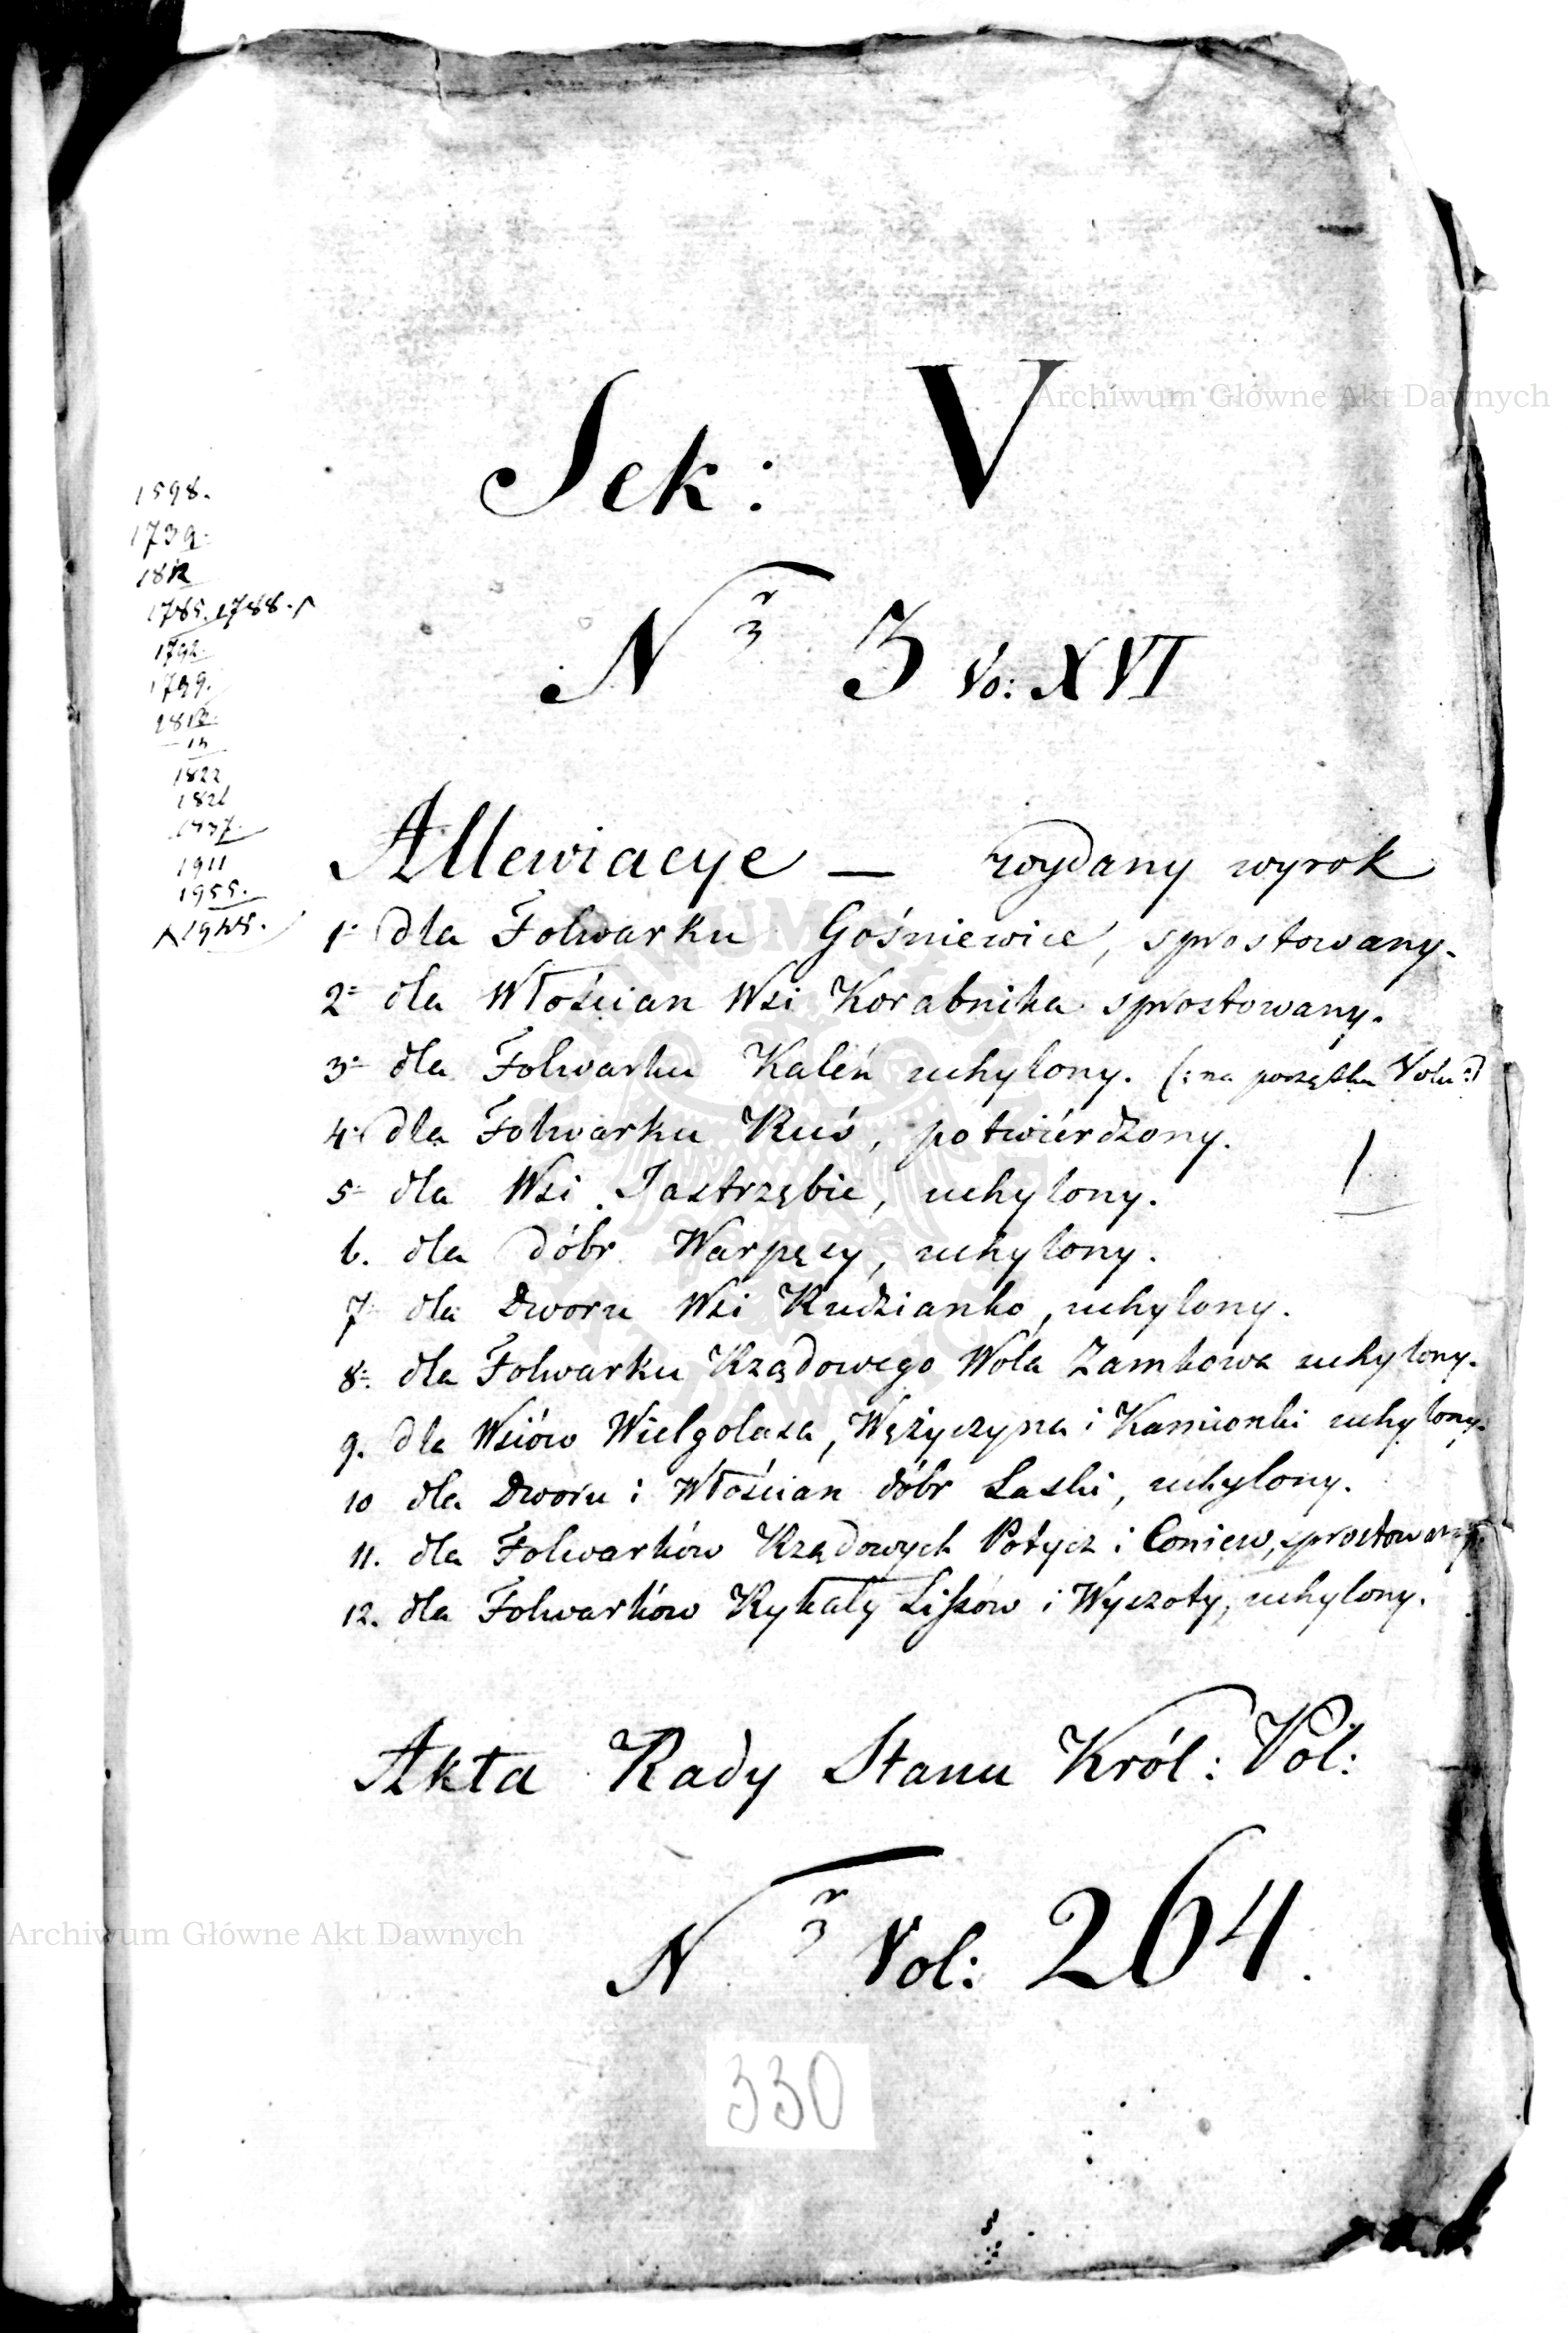 Sek: V
Archiwum Główne Akt Dawnych
1598.
1739.
1812
1785. 1788.
1792.
1799.
1812.
1822
1911
1955.
Nr 3 Vo: XVI
Allewiacye — wydany wyrok
1. dla Folwarku Gośniewice, sprostowany.
2. dla Włościan Wsi Korabnika sprostowany.
3. dla Folwarku Kaleń uchylony. (: na początku Volu :)
4. dla Folwarku Ruś, potwierdzony.
5. dla Wsi Jastrzębie, uchylony.
6. dla dóbr Warpęsy, uchylony.
7. dla Dworu Wsi Rudzianko, uchylony.
8. dla Folwarku Rządowego Wola Zamkowa uchylony.
9. dla Wsiów Wielgolasa, Wężyczyna i Kamionki uchylony.
10 dla Dworu i Włościan dóbr Laski, uchylony.
11. dla Folwarków Rządowych Potycz i Coniew, sprostowany
12. dla Folwarków Rykały Lisów i Wyczoty, uchylony.
Akta Rady Stanu Król: Pol:
Nr Vol: 264.
Archiwum Główne Akt Dawnych
330